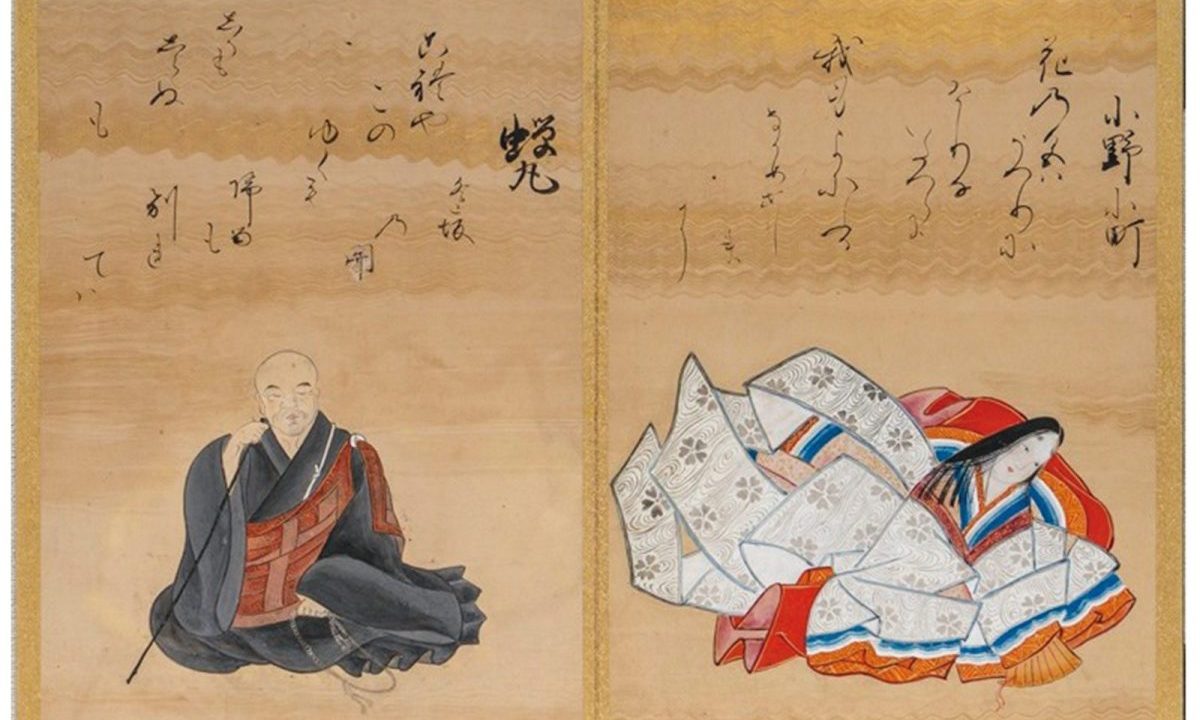 小野小町
花乃色ハ
うつりに
けりな
いたつらに
我みよにふる
なかめせし
まに
蝉丸
これや
この
ゆくも
帰るも
別れ
てハ
しるも
しらぬ
も
逢坂
乃
関